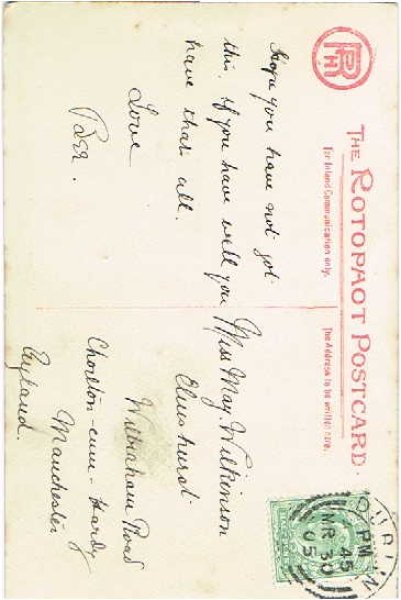 THE ROTOPHOT POSTCARD.
For Inland Communication only.
The Address to be written here.
Hope you have not got
this. If you have will you
have that all.
Love
Miss May. Wilkinson
Elmshurst
Wilbraham Road
Chorlton-cum-Hardy
Manchester
England.
DUBLIN
45
PM
MR 30
05